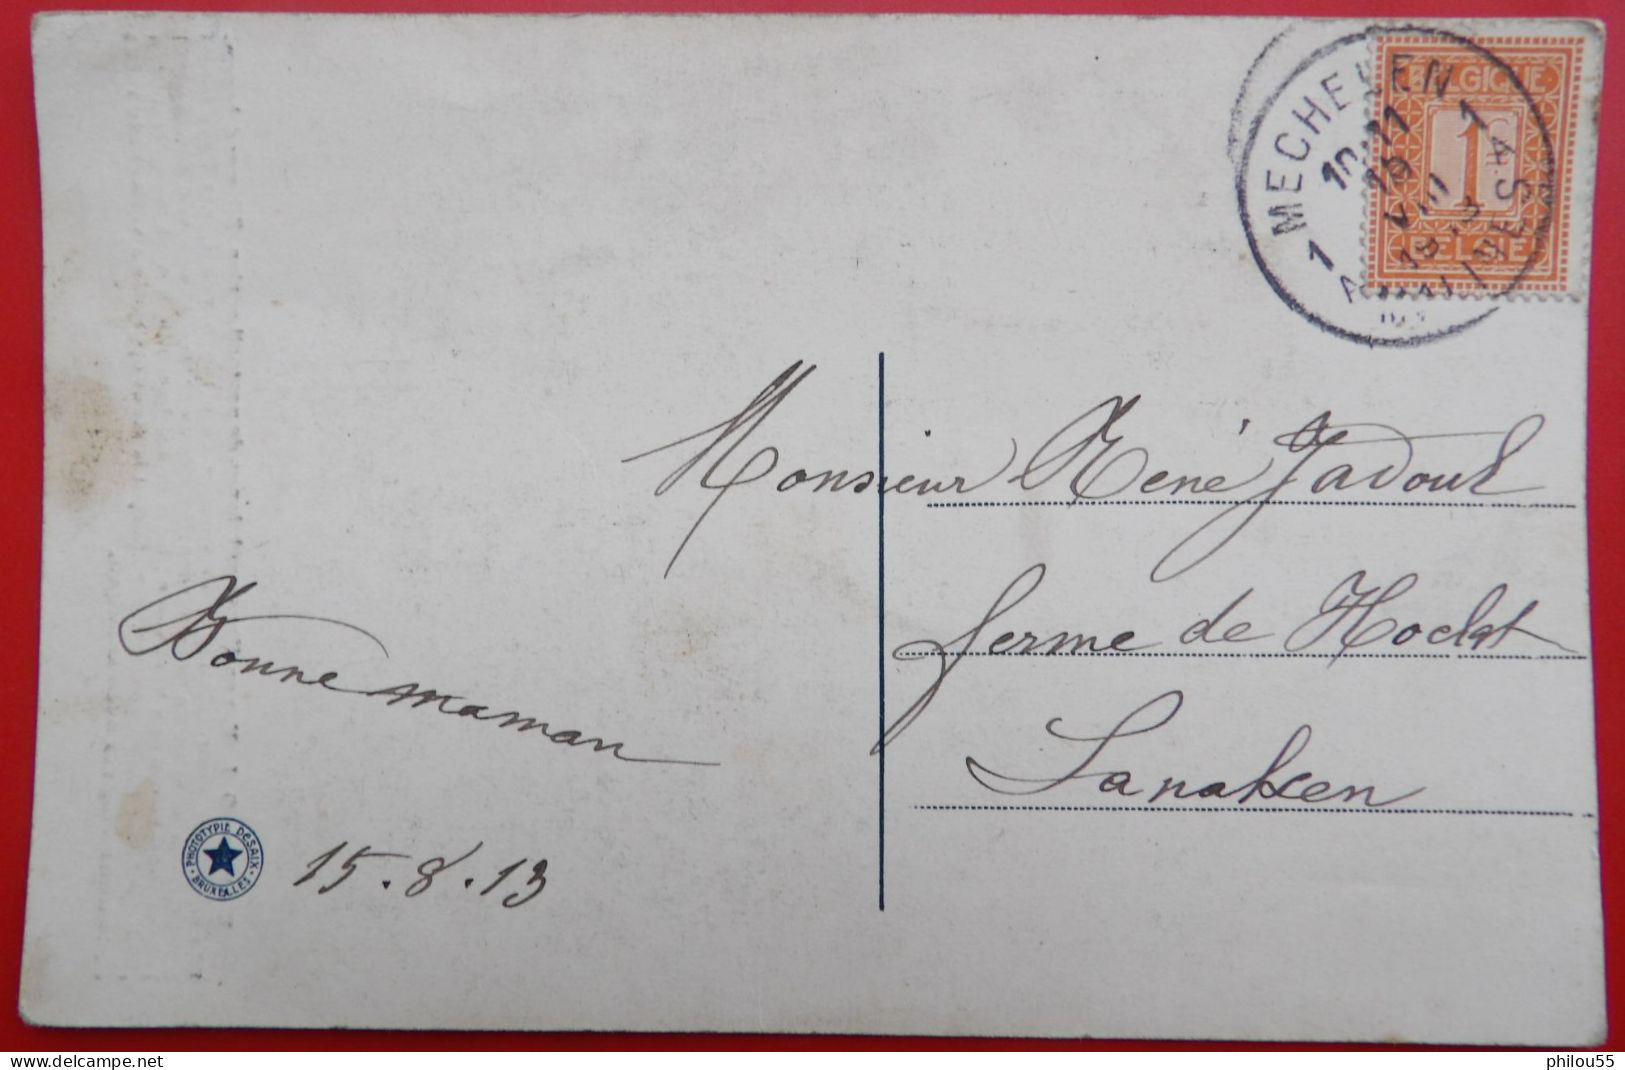 MECHELEN
1 1
10-11
VIII
BELGIQUE
1
BELGIË
Monsieur René Jadoul
ferme de Hocht
Lanaken
Bonne maman
15.8.13
PHOTOTYPIE DESAIX
BRUXELLES
delcampe.net
philou55